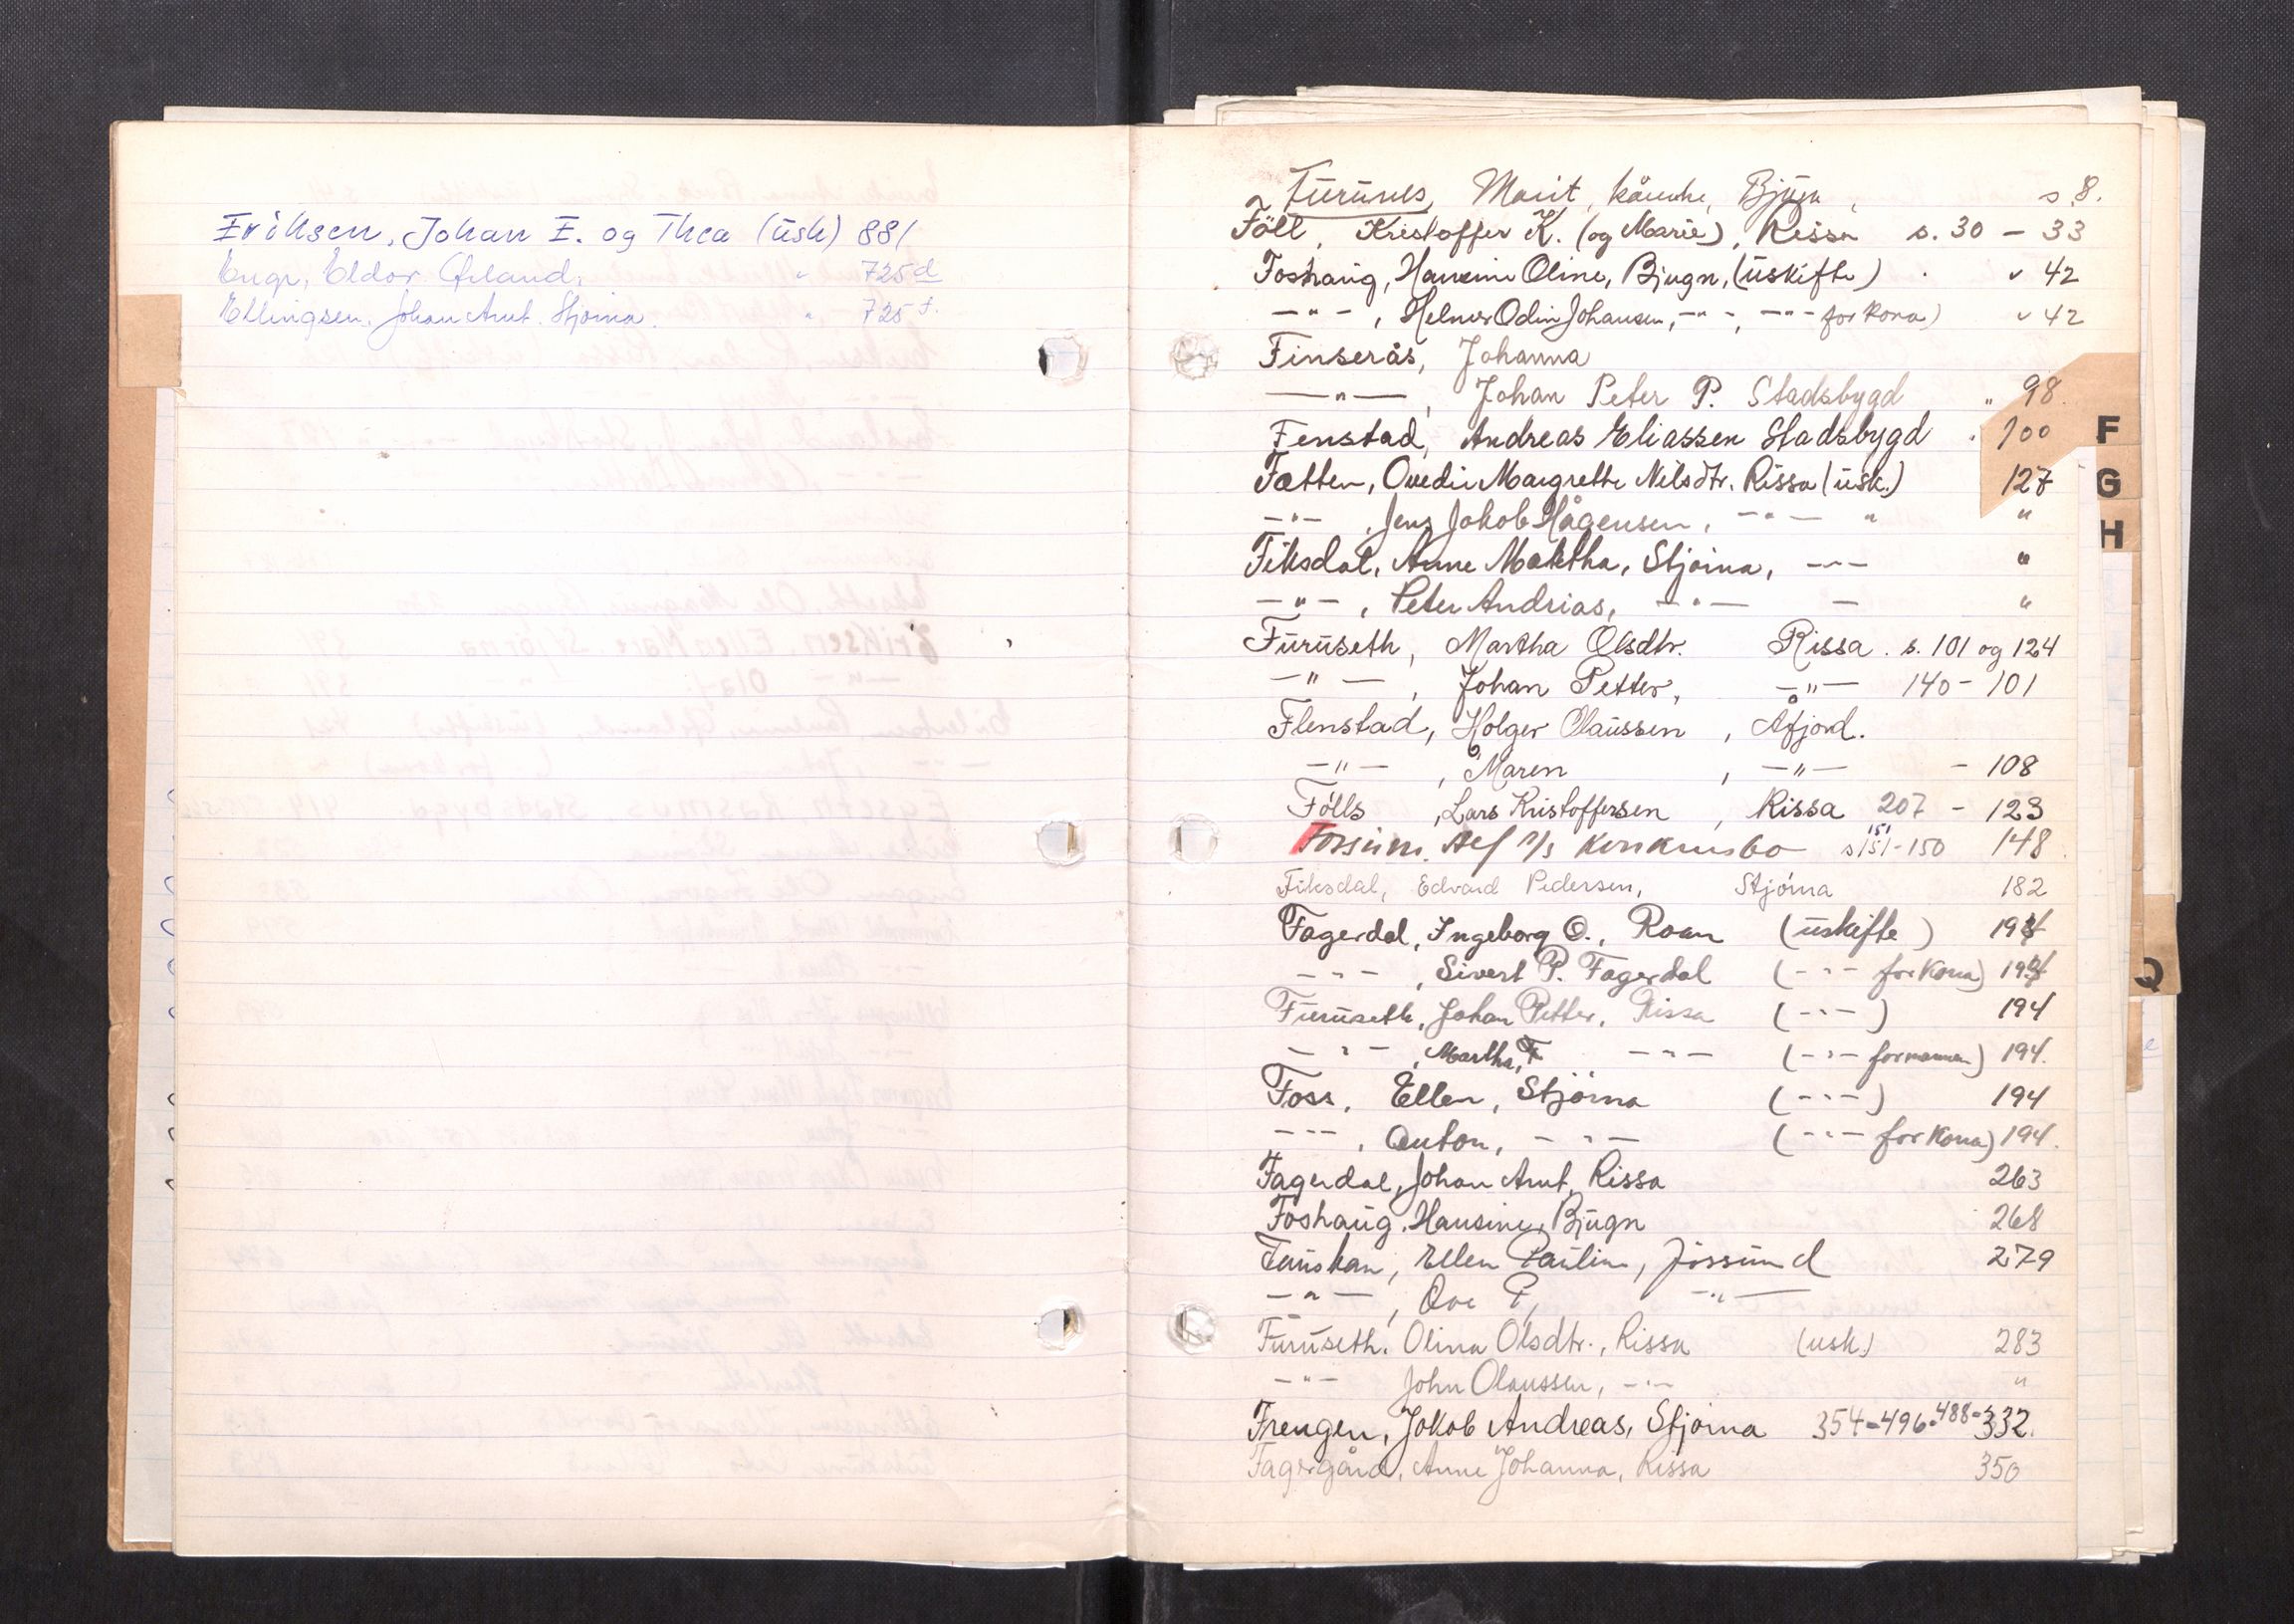 Eriksen, Johan E. og Thea (usk) 881
Engr, Eldor Ørland, " 725 d
Ellingsen, Johan Arnt. Stjørna. " 725 f.
Furunes, Marit, Bjugn, s 8.
Föll, Kristoffer K. (og Marie), Rissa s. 30 - 33
Foshaug, Hansine Oline, Bjugn, (uskifte) 42
-"-, Helmer Odin Johansen, -"-, -"- for kona) 42
Finserås, Johanna
-"-, Johan Peter P. Stadsbygd " 98.
Fenstad, Andreas Eliassen Stadsbygd 100
Fætten, Ovedie Margrethe Nilsdtr. Rissa (usk.) 127
-"-, Jens Jakob Hågensen, -"- " "
Fiksdal, Anne Marktha, Stjørna, -"- "
-"-, Peter Andrias, -"- - "
Furuseth, Martha Olsdtr. Rissa. s. 101 og 124
-"-, Johan Petter, -"- 140 - 101
Flenstad, Holger Olaussen, Åfjord.
-"-, Maren, -"- - 108
Fölls, Lars Kristoffersen, Rissa 207 - 123
Fossum. Alf A/S Konkursbo s 151-150 148
151
Fiksdal, Edvard Pedersen, Stjørna 182
Fagerdal, Ingeborg O., Roan (uskifte) 194
-"-, Sivert P. Fagerdal (-"- for kona) 194
Furuseth, Johan Petter, Rissa (-"-) 194
-"-, Martha, F -"- (-"- for mannen) 194.
Foss, Ellen, Stjørna (-"-) 194
-"-, Anton, -"- (-"- for kona) 194.
Fagerdal, Johan Arnt, Rissa 263
Foshaug, Hansine, Bjugn 268
Fauskan, Ellen Pauline, Jössund 279
-"-, Ove P, -"-
Furuseth. Olina Olsdtr., Rissa (usk.) 283
-"- John Olaussen, -"- "
Frengen, Jakob Andreas, Stjørna 354-496-488-332.
Fagergård, Anne Johanna, Rissa 350
F
G
H
Q